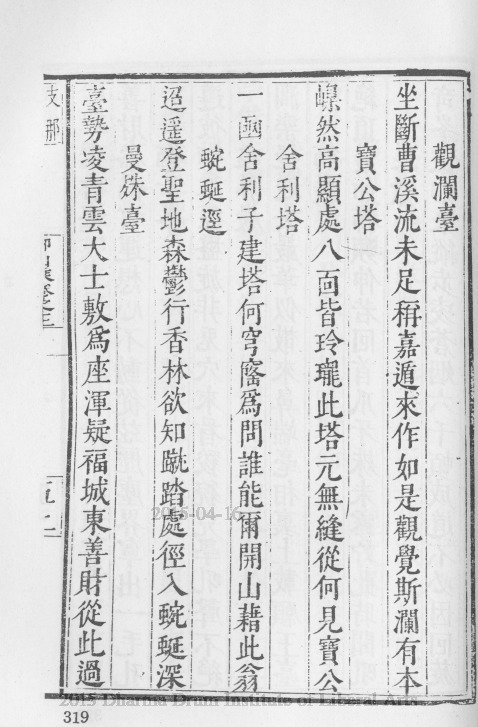 觀瀾臺
坐斷曹溪流未足稱嘉遁來作如是觀覺斯瀾有本
寶公塔
巋然高顯處八面皆玲瓏此塔元無縫從何見寶公
舍利塔
一函舍利子建塔何穹窿為問誰能爾開山藉此翁
蜿蜒逕
迢遥登聖地森鬱行香林欲知蹴踏處徑入蜿蜒深
曼殊臺
臺勢凌青雲大士敷爲座渾疑福城東善財從此過
支那
2015-04-16
2015 Dharma Drum Institute of Liberal Arts
319